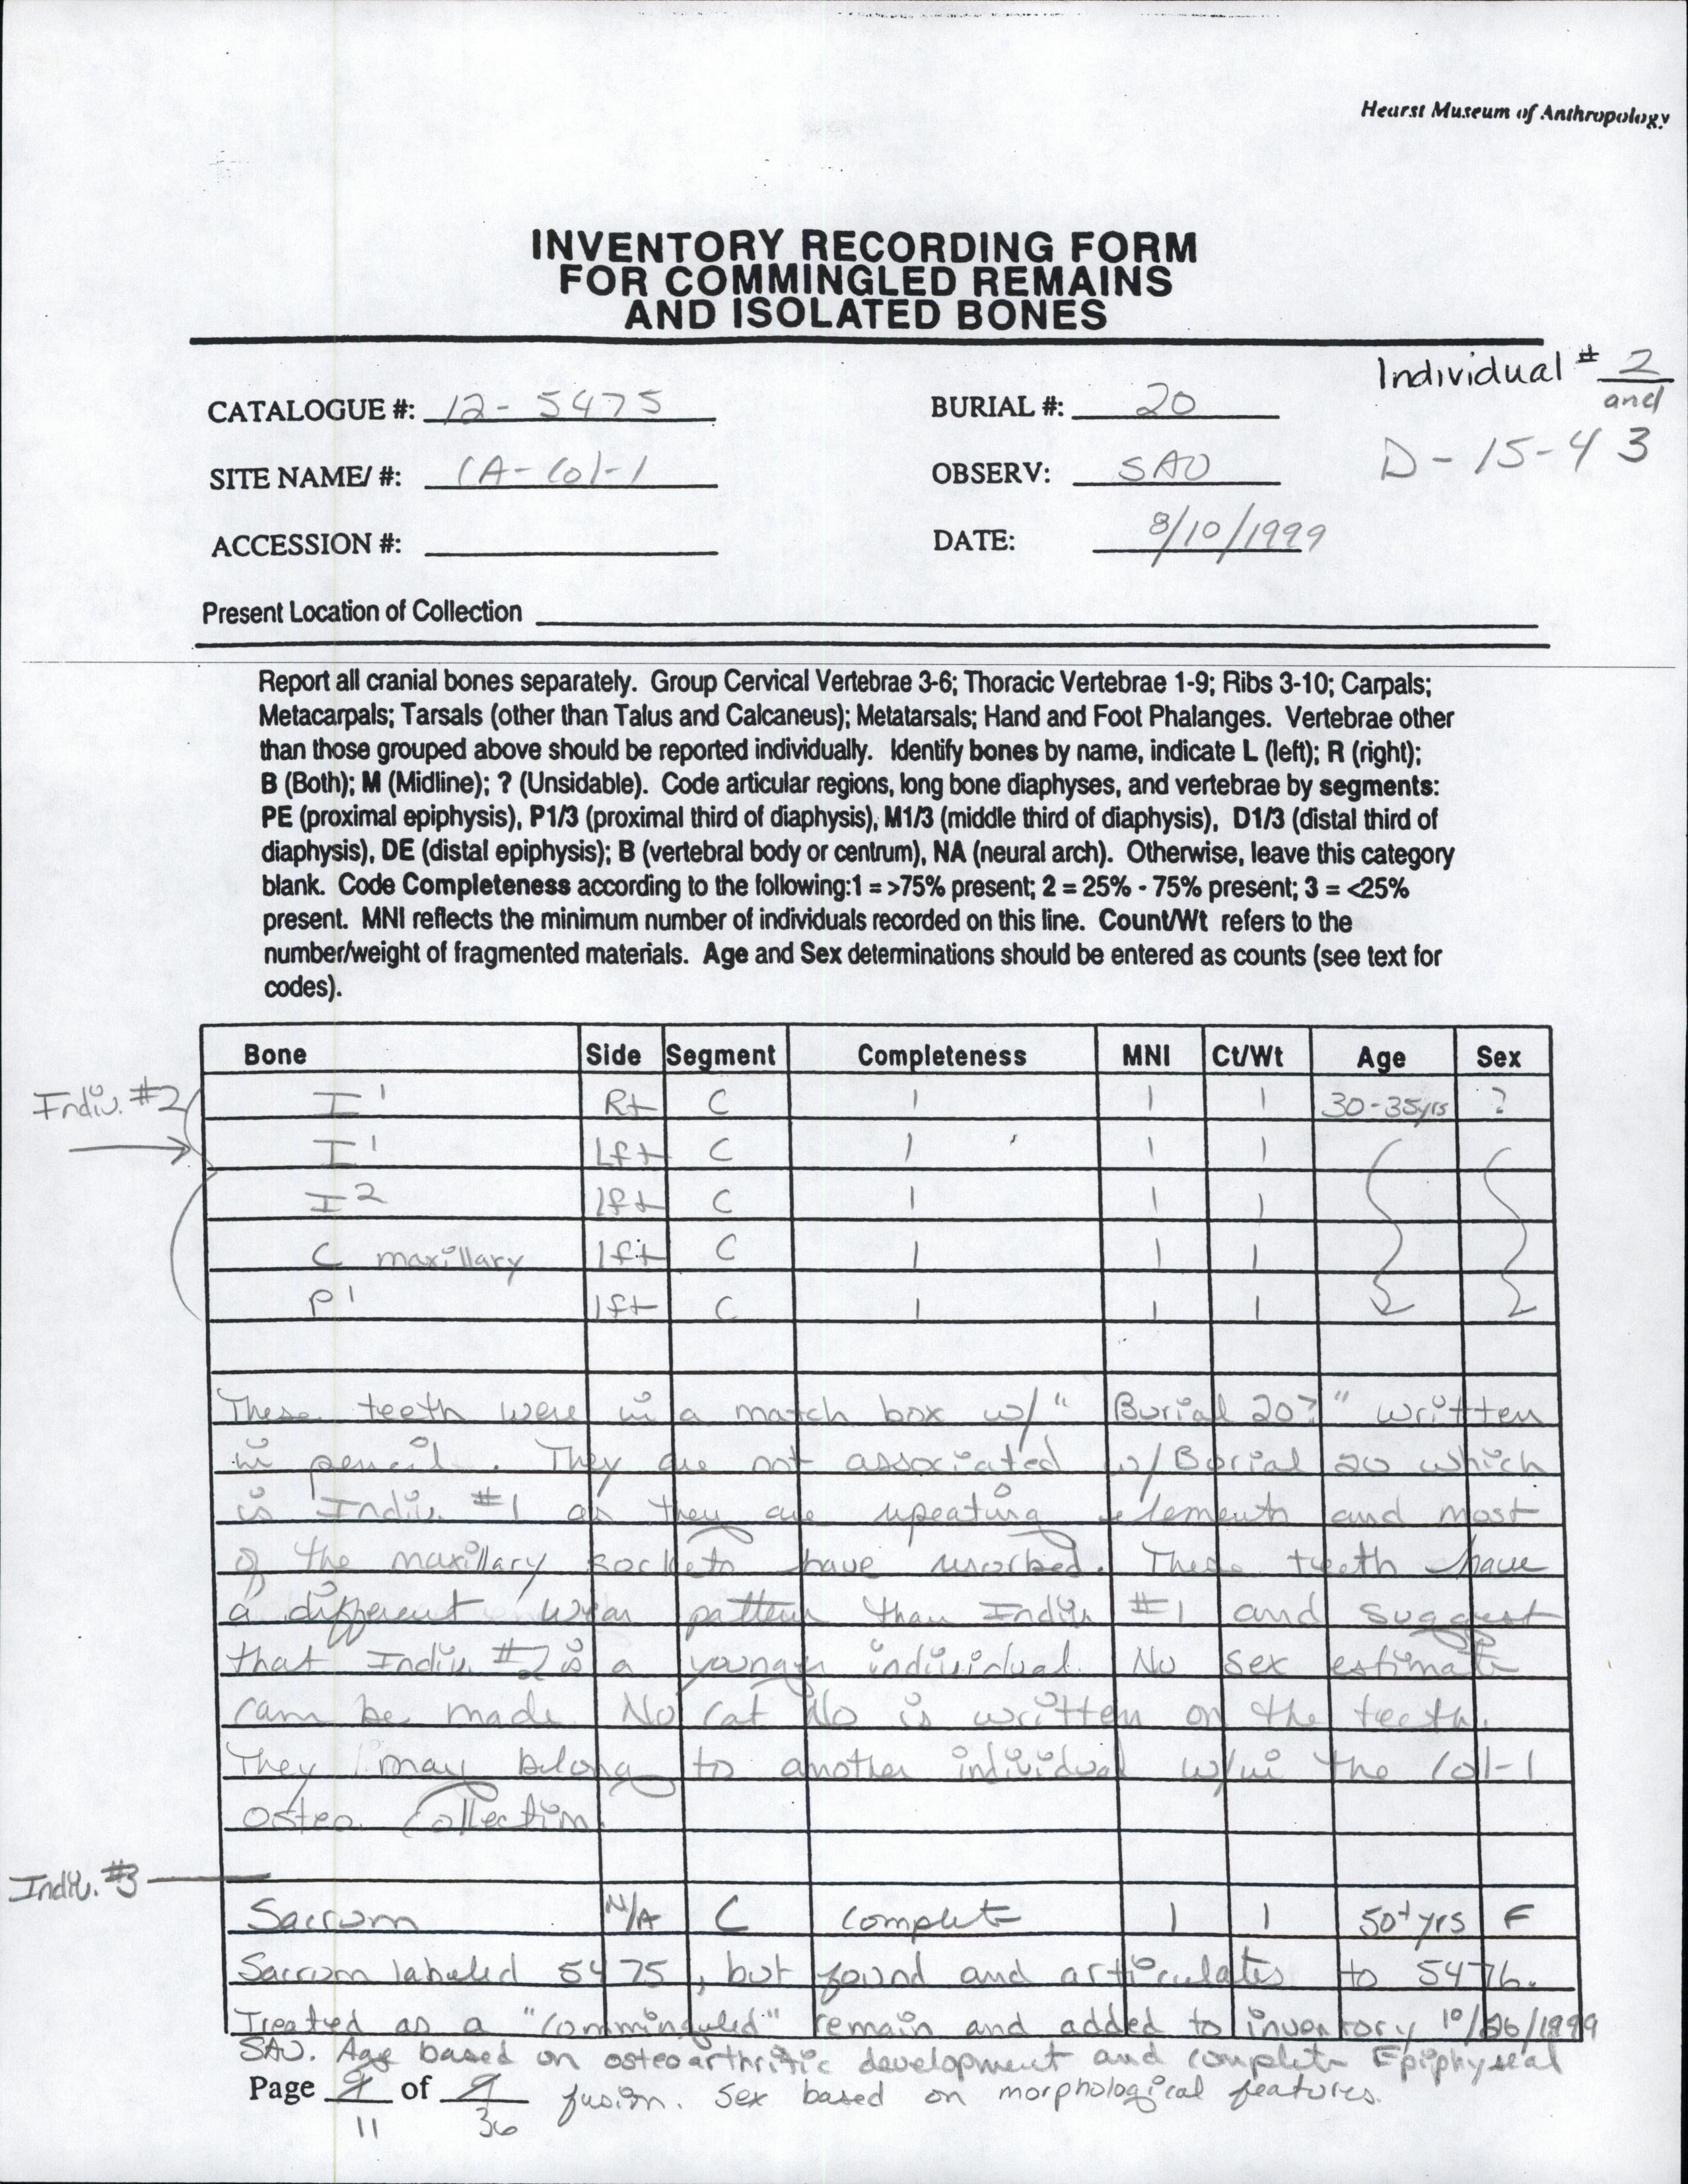 Hearst Museum of Anthropology
INVENTORY RECORDING FORM
FOR COMMINGLED REMAINS
AND ISOLATED BONES
Individual # 2
and
CATALOGUE #: 12-5475 BURIAL #: 20
D-15-43
SITE NAME/ #: CA-Col-1 OBSERV: SAO
ACCESSION #: DATE: 8/10/1999
Present Location of Collection
Report all cranial bones separately. Group Cervical Vertebrae 3-6; Thoracic Vertebrae 1-9; Ribs 3-10; Carpals;
Metacarpals; Tarsals (other than Talus and Calcaneus); Metatarsals; Hand and Foot Phalanges. Vertebrae other
than those grouped above should be reported individually. Identify bones by name, indicate L (left); R (right);
B (Both); M (Midline); ? (Unsidable). Code articular regions, long bone diaphyses, and vertebrae by segments:
PE (proximal epiphysis), P1/3 (proximal third of diaphysis), M1/3 (middle third of diaphysis), D1/3 (distal third of
diaphysis), DE (distal epiphysis); B (vertebral body or centrum), NA (neural arch). Otherwise, leave this category
blank. Code Completeness according to the following:1 = >75% present; 2 = 25% - 75% present; 3 = <25%
present. MNI reflects the minimum number of individuals recorded on this line. Count/Wt refers to the
number/weight of fragmented materials. Age and Sex determinations should be entered as counts (see text for
codes).
Bone Side Segment Completeness MNI Ct/Wt Age Sex
Indiv. #2 I¹ Rt C 1 1 1 30-35yrs ?
I¹ Lft C 1 1 1
I² lft C 1 1 1
C maxillary lft C 1 1 1
P¹ lft C 1 1 1
These teeth were in a match box w/ "Burial 20?" written
in pencil. They are not associated w/ Burial 20 which
is Indiv. #1 as they are repeating elements and most
of the maxillary sockets have resorbed. These teeth have
a different wear pattern than Indiv #1 and suggest
that Indiv. #2 is a younger individual. No sex estimate
can be made. No Cat No is written on the teeth.
They may belong to another individual w/in the Col-1
osteo. Collection.
Indiv. #3
Sacrum N/A C Complete 1 1 50+ yrs F
Sacrum labeled 5475, but found and articulates to 5476.
Treated as a "commingled" remain and added to inventory 10/26/1999
SAO. Age based on osteoarthritic development and complete Epiphyseal
Page 9 of 9 fusion. Sex based on morphological features.
11 36